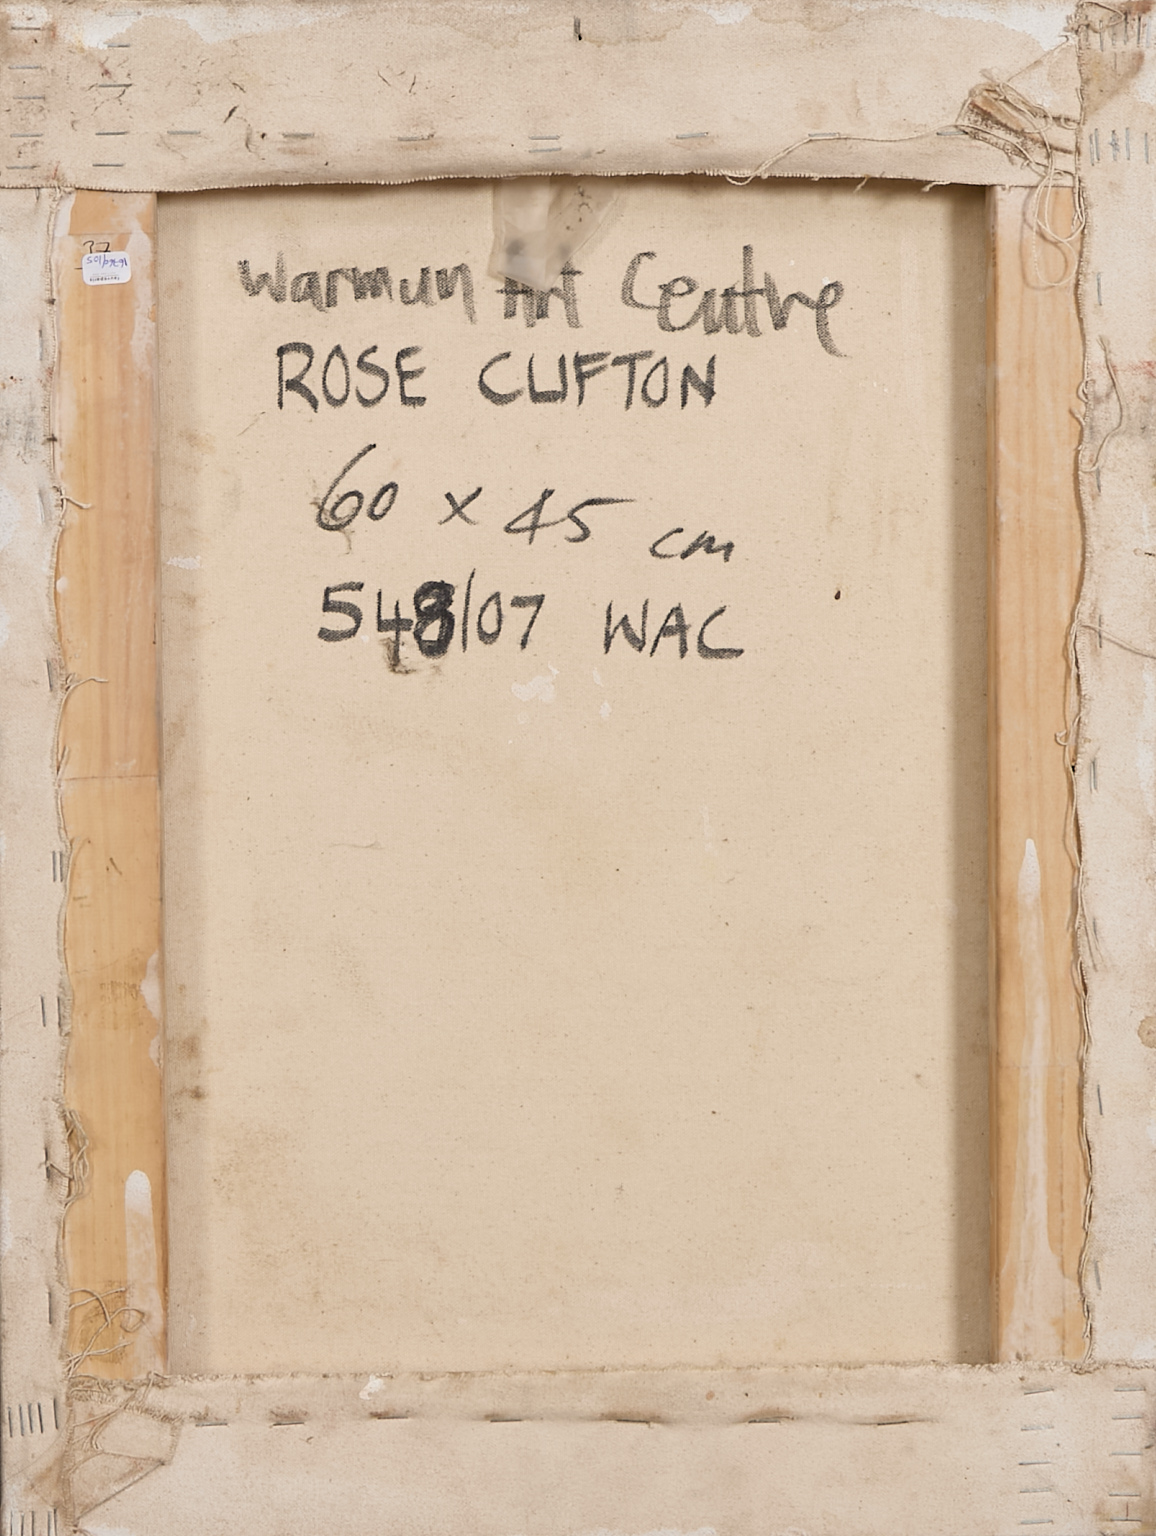 Warmun Art Centre
ROSE CLIFTON
60 x 45 cm
548/07 WAC
37